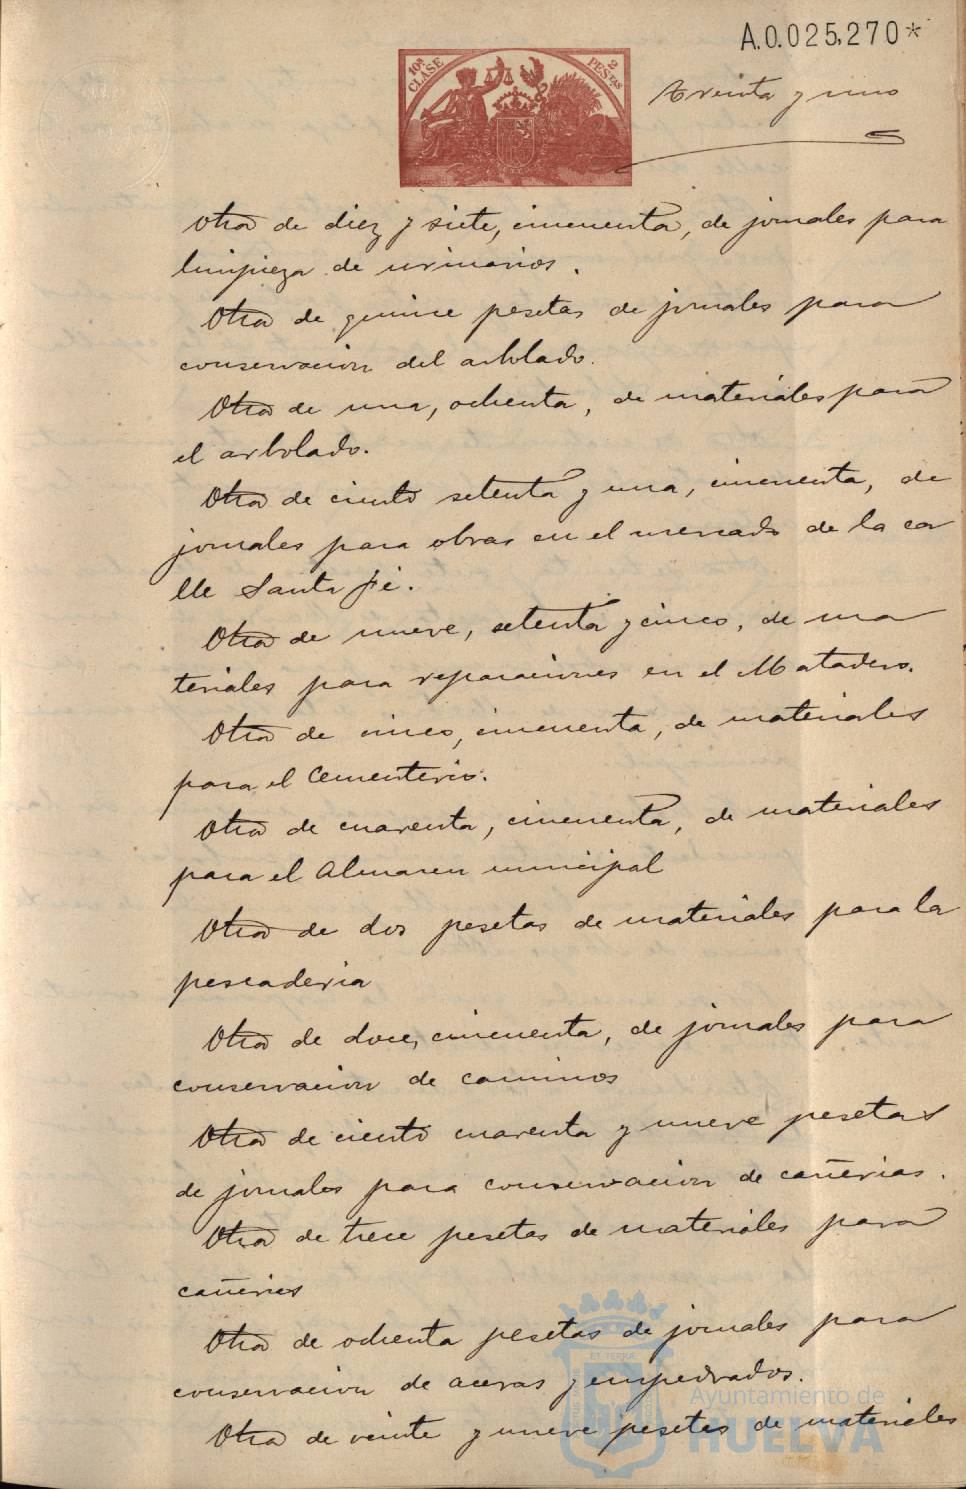 A.0.025,270*
10ª CLASE
2 PESTAS
Treinta y uno
Otra de diez y siete, cincuenta, de jornales para
limpieza de urinarios.
Otra de quince pesetas de jornales para
conservacion del arbolado.
Otra de una, ochenta, de materiales para
el arbolado.
Otra de ciento setenta y una, cincuenta, de
jornales para obras en el mercado de la ca
lle Santa Fé.
Otra de nueve, setenta y cinco, de ma
teriales para reparaciones en el Matadero.
Otra de cinco, cincuenta, de materiales
para el Cementerio.
Otra de cuarenta, cincuenta, de materiales
para el Almacen municipal
Otra de dos pesetas de materiales para la
pescaderia
Otra de doce, cincuenta, de jornales para
conservacion de caminos
Otra de ciento cuarenta y nueve pesetas
de jornales para conservacion de cañerias.
Otra de trece pesetas de materiales para
cañerias
Otra de ochenta pesetas de jornales para
conservacion de aceras y empedrados.
Otra de veinte y nueve pesetas de materiales
Ayuntamiento de
HUELVA